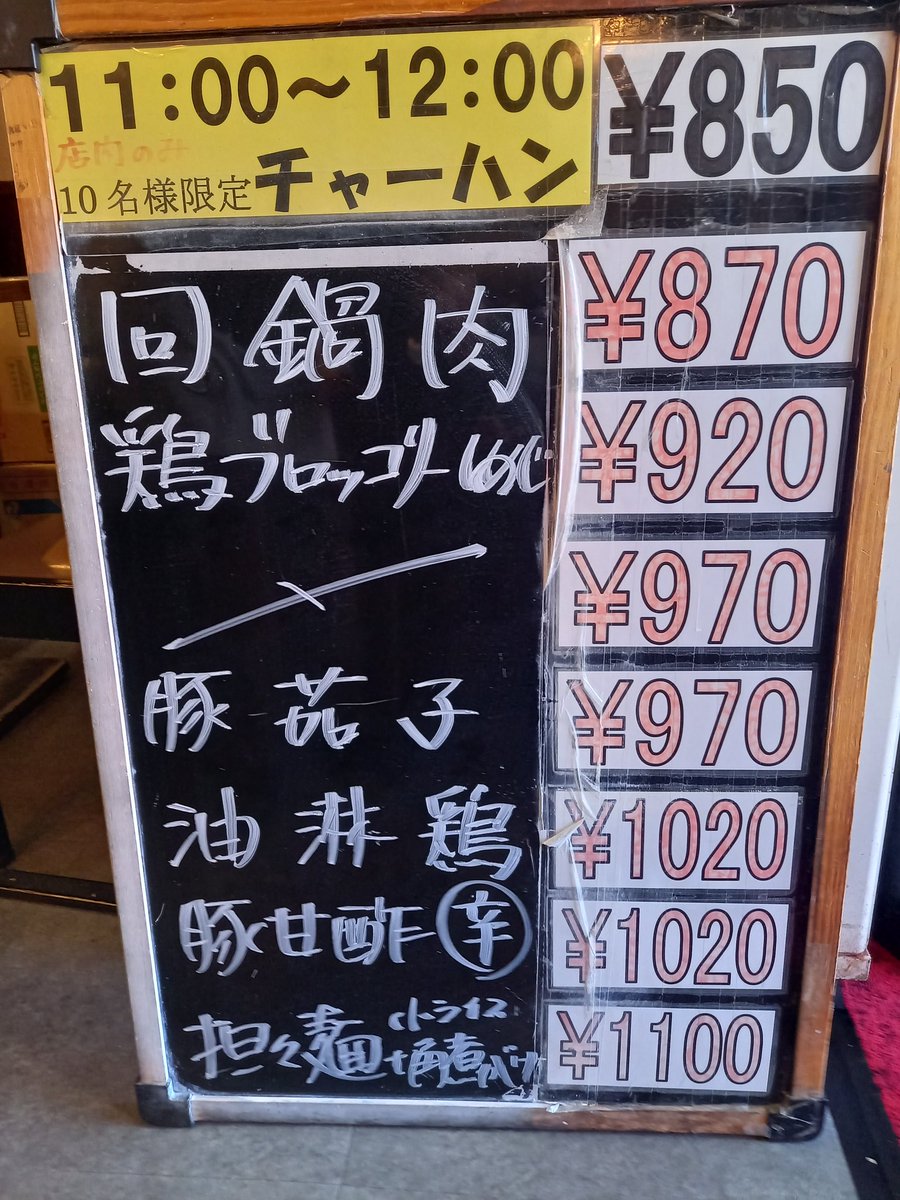 11:00〜12:00 ¥850
店内のみ
10名様限定チャーハン
回鍋肉 ¥870
鶏ブロッコリーしめじ ¥920
¥970
豚茄子 ¥970
油淋鶏 ¥1020
豚甘酢辛 ¥1020
担々麺 小ライス ¥1100
+角煮